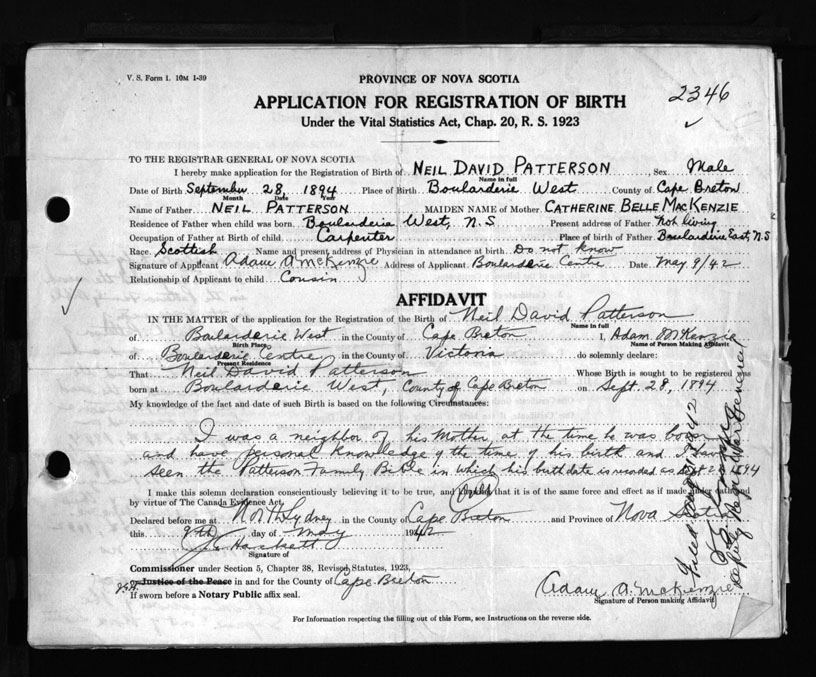 V. S. Form 1. 10M 1-39
PROVINCE OF NOVA SCOTIA
2346
APPLICATION FOR REGISTRATION OF BIRTH
Under the Vital Statistics Act, Chap. 20, R. S. 1923
TO THE REGISTRAR GENERAL OF NOVA SCOTIA
I hereby make application for the Registration of Birth of NEIL DAVID PATTERSON Sex Male
Name in full
Date of Birth September 28, 1894 Place of Birth Boularderie West County of Cape Breton
Month Date Year
Name of Father NEIL PATTERSON MAIDEN NAME of Mother CATHERINE BELLE MACKENZIE
Residence of Father when child was born Boularderie West, N.S Present address of Father Not living
Occupation of Father at Birth of child Carpenter Place of birth of Father Boularderie East, N.S
Race Scottish Name and present address of Physician in attendance at birth Do not know
Signature of Applicant Adam A. McKenzie Address of Applicant Boularderie Centre Date May 9/42
Relationship of Applicant to child Cousin
AFFIDAVIT
IN THE MATTER of the application for Registration of the Birth of Neil David Patterson
Name in full
of Boularderie West in the County of Cape Breton I, Adam McKenzie
Birth Place Name of Person Making Affidavit
of Boularderie Centre in the County of Victoria do solemnly declare:
Present Residence
That Neil David Patterson Whose Birth is sought to be registered was
born at Boularderie West, County of Cape Breton on Sept. 28, 1894
My knowledge of the fact and date of such Birth is based on the following Circumstances:
I was a neighbor of his Mother at the time he was born
and have personal knowledge of the time of his birth and I have
seen the Patterson Family Bible in which his birth date is recorded as Sept 28 1894
I make this solemn declaration conscientiously believing it to be true, and that it is of the same force and effect as if made under oath and
by virtue of The Canada Evidence Act.
Declared before me at North Sydney in the County of Cape Breton and Province of Nova Scotia
this 9th day of May 1942
Hackett
Signature of
Commissioner under Section 5, Chapter 38, Revised Statutes, 1923,
Justice of the Peace in and for the County of Cape Breton
If sworn before a Notary Public affix seal.
Adam A. McKenzie
Signature of Person making Affidavit
For Information respecting the filling out of this Form, see Instructions on the reverse side.
Filed
Deputy Registrar General